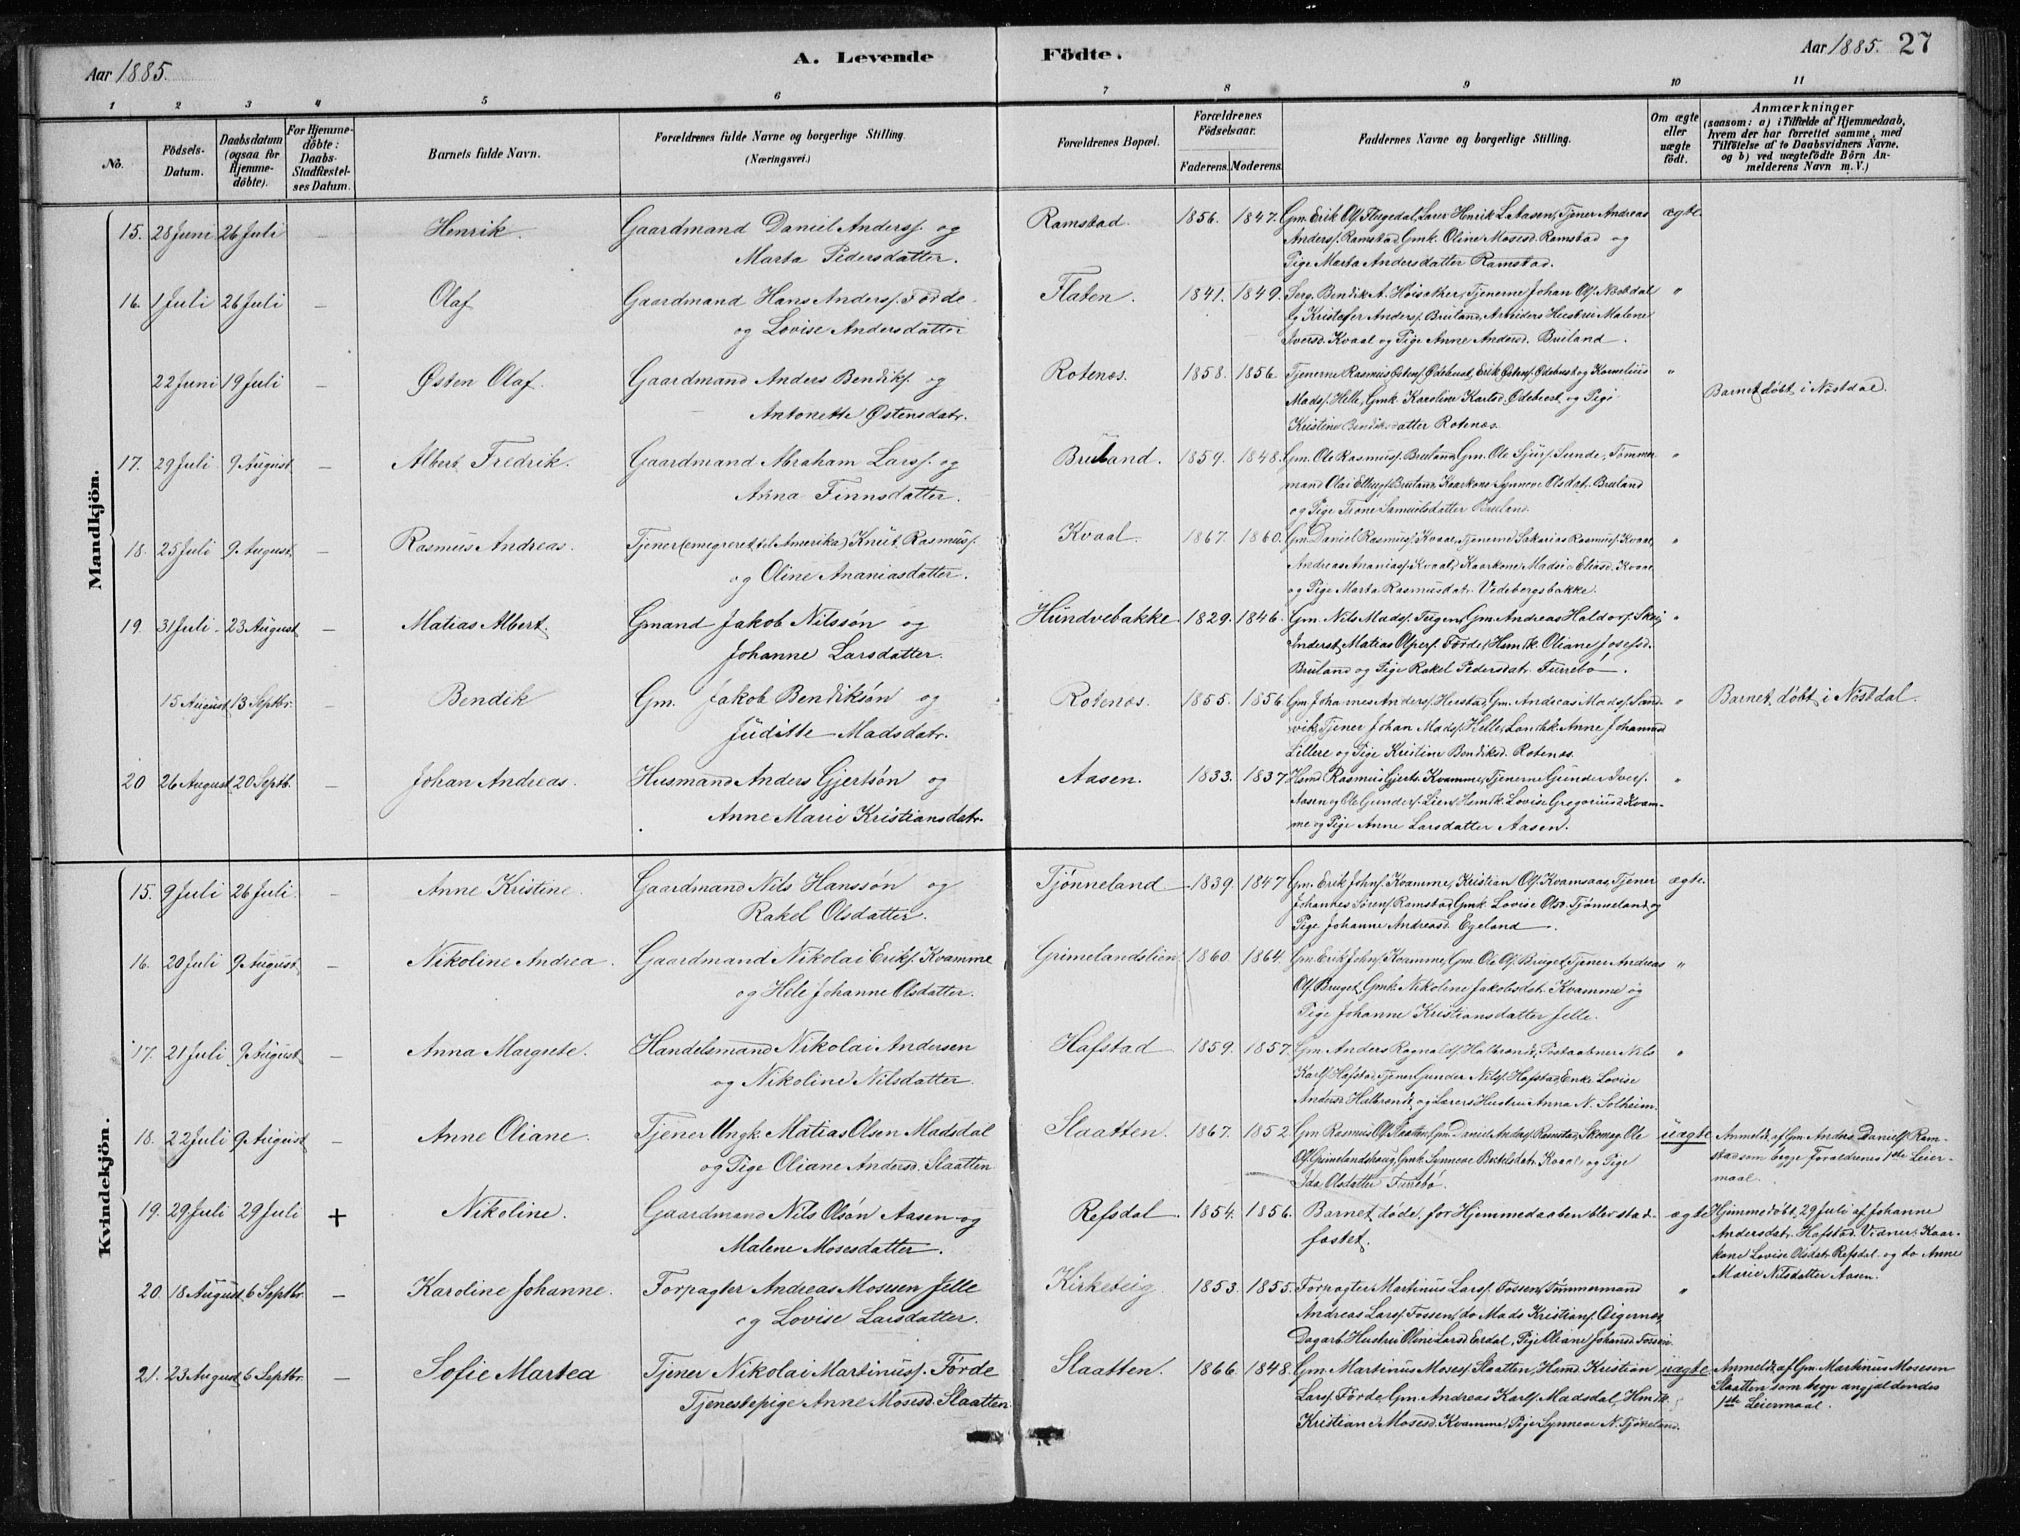 Aar 1885.
A. Levende Födte.
Aar 1885. 27
1 2 3 4 5 6 7 8 9 10 11
No.
Födsels-Datum.
Daabsdatum (ogsaa for Hjemmedöbte).
For Hjemmedöbte: Daabs-Stadfæstelses Datum.
Barnets fulde Navn.
Forældrenes fulde Navne og borgerlige Stilling. (Næringsvei.)
Forældrenes Bopæl.
Forældrenes Födselsaar.
Faderens. Moderens.
Faddernes Navne og borgerlige Stilling.
Om ægte eller uægte födt.
Anmærkninger
(saasom: a) i Tilfælde af Hjemmedaab, hvem der har forrettet samme, med Tilföielse af to Daabsvidners Navne. og b) ved uægtefödte Börn Anmelderens Navn m.V.)
Mandkjön.
15. 28 Juni 26 Juli – Henrik. Gaardmand Daniel Anders. og
Marta Pedersdatter.
Ramstad. 1856. 1847. Gm. Erik Ols. Flugedal, Lærer Henrik L. Aasen, Tjener Andreas
Anders. Ramstad, Gmk. Oline Mosesd. Ramstad og
Pige Marta Andersdatter Ramstad.
ægte
16. 1 Juli 26 Juli – Olaf Gaardmand Hans Anders. Förde
og Lovise Andersdatter
Flaten. 1841. 1849. Serg. Bendik A. Høisæther, Tjenerne Johan Ols. Nøstdal
og Kristofer Anders. Bruland, Arbeiders Hustru Malene
Iversd. Kvaal og Pige Anne Andersd. Bruland.
"
22 Juni 19 Juli – Østen Olaf. Gaardmand Anders Bendiks. og
Antonette Østensdatr.
Rotenæs. 1858. 1856. Tjenerne Rasmus Østens. Ødehust, Erik Østens. Ødehust og Kornelius
Mads. Helle, Gmk. Karoline Karlsd. Ødehust, og Pige
Kristine Bendiksdatter Rotenæs.
"
Barnet døbt i Nøstdal.
17. 29 Juli 9 August – Albert Fredrik. Gaardmand Abraham Lars. og
Anna Finnsdatter.
Bruland. 1859. 1848. Gm. Ole Rasmus. Bruland, Gm. Ole Sjurs. Sunde, Tømmer-
mand Olai Ellings. Bruland, Kaarkone Synneve Olsdatr. Bruland
og Pige Trone Samuelsdatter Bruland.
"
18. 25 Juli 9 August – Rasmus Andreas. Tjener (emigreret til Amerika) Knut Rasmus.
og Oline Ananiasdatter.
Kvaal. 1867. 1860. Gm. Daniel Rasmus. Kvaal, Tjenerne Sakarias Rasmus. Kvaal,
Andreas Ananias. Kvaal, Kaarkone Madsie Eliasd. Kvaal
og Pige Marta Rasmusdatr. Vedebergsbakke.
"
19. 31 Juli 23 August – Matias Albert. Gmand Jakob Nilssøn og
Johanne Larsdatter.
Hundvebakke. 1829. 1846. Gm. Nils Mads. Teigen, Gm. Andreas Haldors. Skei,
Inderst Matias Olpers. Förde, Hsmk. Oliane Josefsd.
Bruland og Pige Rakel Pedersdatr. Furrebø.
"
15 August 13 Septbr. – Bendik Gm. Jakob Bendiksøn og
Juditte Madsdatr.
Rotenæs. 1855. 1856. Gm. Johannes Anders. Herstad, Gm. Andreas Mads. Sand-
vik, Tjener Johan Mads. Helle, Landhk. Anne Johannesd.
Lillere og Pige Kristine Bendiksd. Rotenæs.
"
Barnet døbt i Nøstdal.
20 26 August 20 Septb. – Johan Andreas. Husmand Anders Gjertsøn og
Anne Marie Kristiansdatr.
Aasen. 1833. 1837 Hsmd. Rasmus Gjerts. Kvamme, Tjenerne Gunder Ivers.
Aasen og Ole Gunders. Lien, Hsmk. Lovise Gregoriusd. Kvam-
me og Pige Anne Larsdatter Aasen.
"
Kvindekjön.
15. 9 Juli 26 Juli. – Anne Kristine. Gaardmand Nils Hanssøn og
Rakel Olsdatter.
Tjønneland 1839. 1847 Gm. Erik Johns. Kvamme, Kristian Ols. Kvamsaas, Tjener
Johannes Sørens. Ramstad, Gmk. Lovise Olsd. Tjønneland, og
Pige Johanne Andreasd. Egeland.
ægte.
16. 20 Juli 9 August – Nikoline Andrea. Gaardmand Nikolai Eriks. Kvamme
og Hele Johanne Olsdatter.
Grimelandslien. 1860. 1864. Gm. Erik Johns. Kvamme, Gm. Ole Ols. Bruget, Tjener Andreas
Ols. Bruget, Gmk. Nikoline Jakobsdatr. Kvamme og
Pige Johanne Kristiansdatter Jelle.
"
17. 21 Juli 9 August – Anna Margrete. Handelsmand Nikolai Andersen
og Nikoline Nilsdatter.
Hafstad 1859. 1857. Gm. Anders Ragnalds. Halbrend, Postaabner Nils
Karls. Hafstad, Tjener Gunder Nils. Hafstad, Enke Lovise
Andersd. Halbrende, og Lærers Hustru Anna N. Solheim.
"
18. 22 Juli 9 August – Anne Oliane. Tjener Ungk. Matias Olsen Madsdal
og Pige Oliane Andersd. Slaatten
Slaatten. 1867. 1852 Gm. Rasmus Ols. Slaatten, Gm. Daniel Anders. Ramstad, Skomag. Ole
Ols. Grimelandshaug, Gmk. Synneve Bertelsdatr. Kvaal og Pige
Ida Olsdatter Furrebø.
uægte
Anmeldt af Gm. Anders Daniels. Ram-
stad som begge Forældrenes 1ste Leier-
maal.
19. 29 Juli 29 Juli + Nikoline. Gaardmand Nils Olsøn Aasen og
Malene Mosesdatter.
Refsdal. 1854. 1856. Barnet døde, før Hjemmedaaben blev stad-
fæstet.
ægte
Hjemmedøbt 29 Juli af Johanne
Andersdatr. Hafstad. Vidner: Kaar-
kone Lovise Olsdatr. Refsdal og do Anne
Marie Nilsdatter Aasen.
20. 18 August 6 Septbr. – Karoline Johanne. Forpagter Andreas Mosesen Jelle
og Lovise Larsdatter.
Kirketeig. 1853. 1855. Forpagter Martinus Lars. Fossen, Tømmermand
Andreas Lars. Fossen, do Mads Kristians. Osgernæs,
Dagarb. Hustru Oline Larsd. Erdal, Pige Oliane Johansd. Fossen.
"
21. 23 August 6 Septbr. – Sofie Martea Tjener Nikolai Martinus. Förde
Tjenestepige Anne Mosesd. Slaatten.
Slaatten. 1866. 1848. Gm. Martinus Moses. Slaatten, Hsmd. Kristian
Lars. Förde, Gm. Andreas Karls. Madsdal, Hsmk.
Kristiane Mosesd. Kvamme, Pige Synneve N. Tjønneland.
uægte
Anmeldt af Gm. Martinus Mosesen
Slaatten som begge angjældendes
1ste Leiermaal.